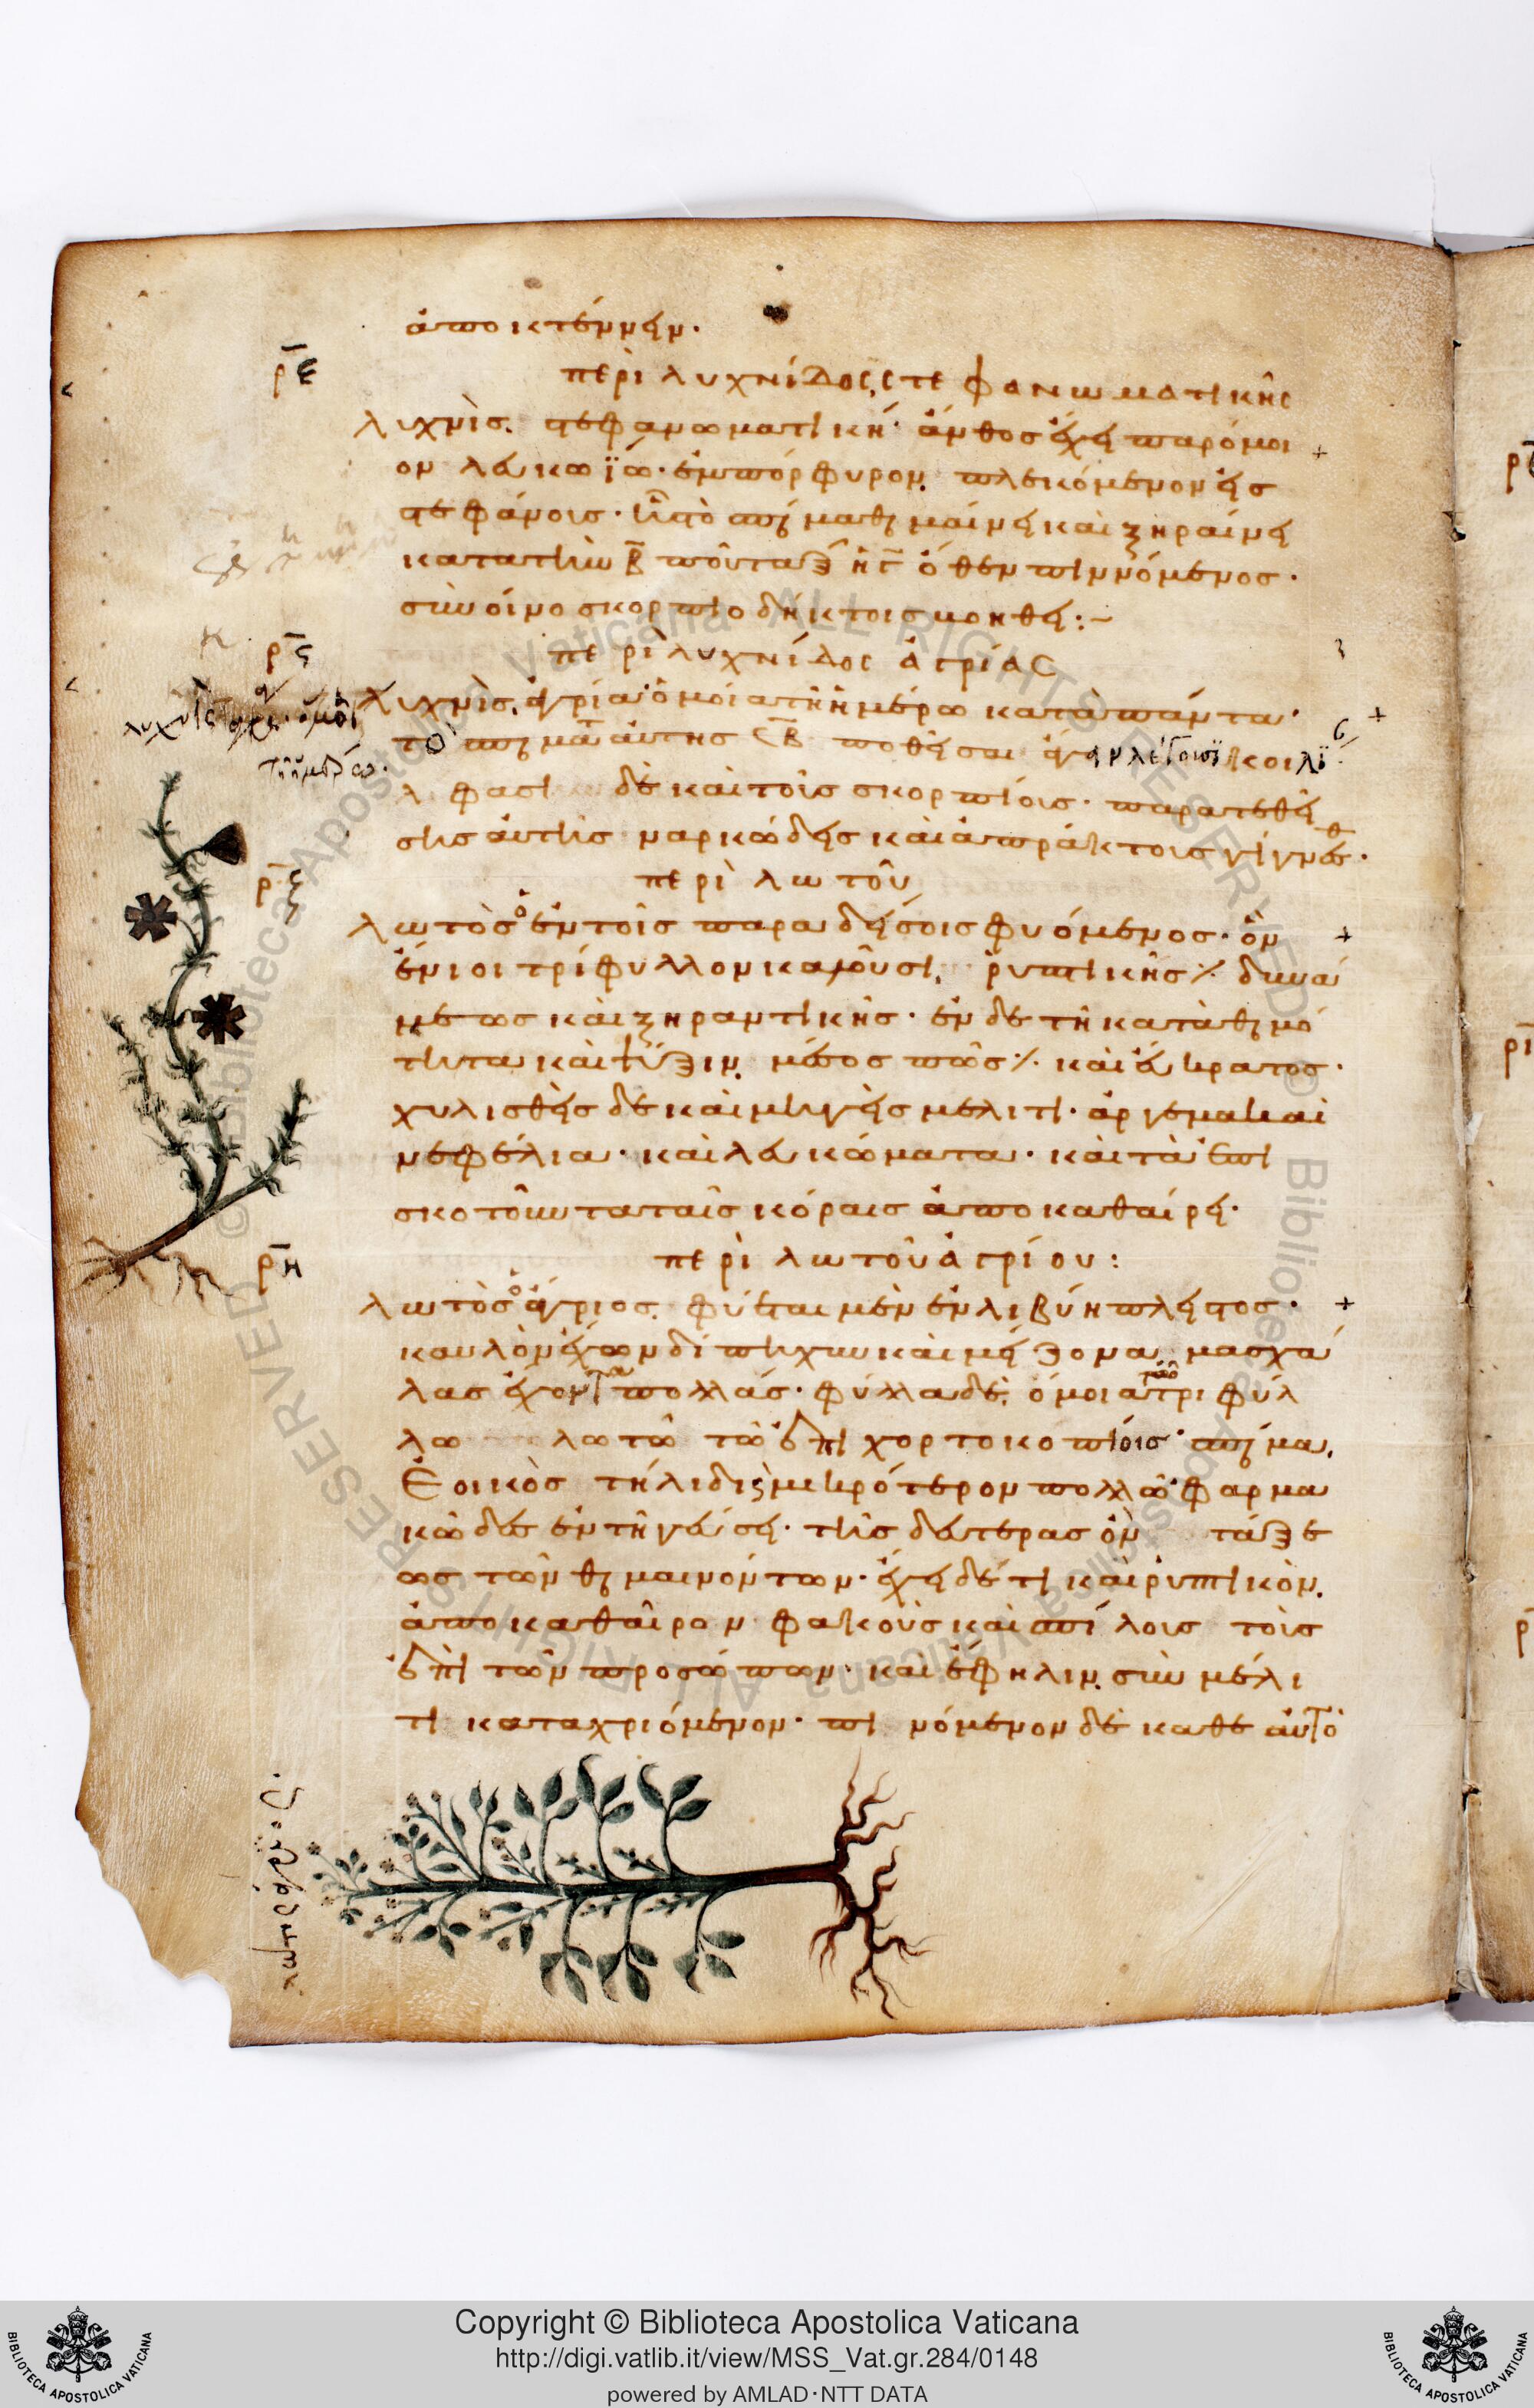 ἀποκτέννειν·
ρξε
περὶ λυχνίδος στεφανωματικῆς
λυχνὶς στεφανωματικὴ· ἄνθος ἔχει παρόμοι
ον λευκωΐω· ἐμπόρφυρον πλεκόμενον εἰς
στεφάνοις· καὶ ξηραίνει
κατὰ τὴν β ὅθεν πιννόμενος·
σὺν οἴνο σκορπιοδήκτοις βοηθεῖ:~
ρξς
περὶ λυχνίδος ἀγρίας
λυχνὶς ἀγρία ὁμοία τῇ ἡμέρω κατὰ πάντα·
αὐτῆς ποθῆσαι κοιλι
φασὶ δὲ καὶ τοῖς σκορπίοις· παρατεθεῖ
σης αὐτῆς ναρκώδεις καὶ ἀπράκτοις γίγνεσθ·
ρξζ
περὶ λωτοῦ
λωτὸς ὁ ἐν τοῖς παραδείσοις φυόμενος· ὃν
ἔνιοι τρίφυλλον καλοῦσι, ῥυπτικῆς δυνά
μεως καὶ ξηραντικῆς· ἐν δὲ τῇ κατὰ θερμό
τητα καὶ ψύξιν μέσος πῶς καὶ εὔκρατος·
χυλισθεὶς δὲ καὶ μιγεὶς μέλιτι· ἄργεμα καὶ
νεφέλια· καὶ λευκώματα· καὶ τὰ ἐπὶ
σκοτοῦντα ταῖς κόραις ἀποκαθαίρει·
ρξη
περὶ λωτοῦ ἀγρίου:
λωτὸς ὁ ἄγριος φύεται μὲν ἐν λιβύη πλεῖστος·
καυλὸν ἔχων δίπηχυν καὶ μείζονα μασχά
λας ἔχοντα πολλάς· φύλλα δὲ ὅμοια τριφύλ
λω λωτῶ τῶ ἐπὶ χορτοκοπίοις· σπέρμα
ἐοικὸς τήλιδι μικρότερον πολλῶ· φαρμα
κῶδες ἐν τῇ γεύσει· τῆς δευτέρας ὂν τάξε
ως τῶν θερμαινόντων· ἔχει δέ τι καὶ ῥυπτικὸν
ἀποκαθαῖρον φακοὺς καὶ σπίλους τοῖς
ἐπὶ τῶν προσώπων· καὶ ἔφηλιν σὺν μέλι
τι καταχριόμενον· πινόμενον δὲ καθ ἑαυτὸ
Copyright © Biblioteca Apostolica Vaticana
http://digi.vatlib.it/view/MSS_Vat.gr.284/0148
powered by AMLAD·NTT DATA
BIBLIOTECA APOSTOLICA VATICANA
BIBLIOTECA APOSTOLICA VATICANA